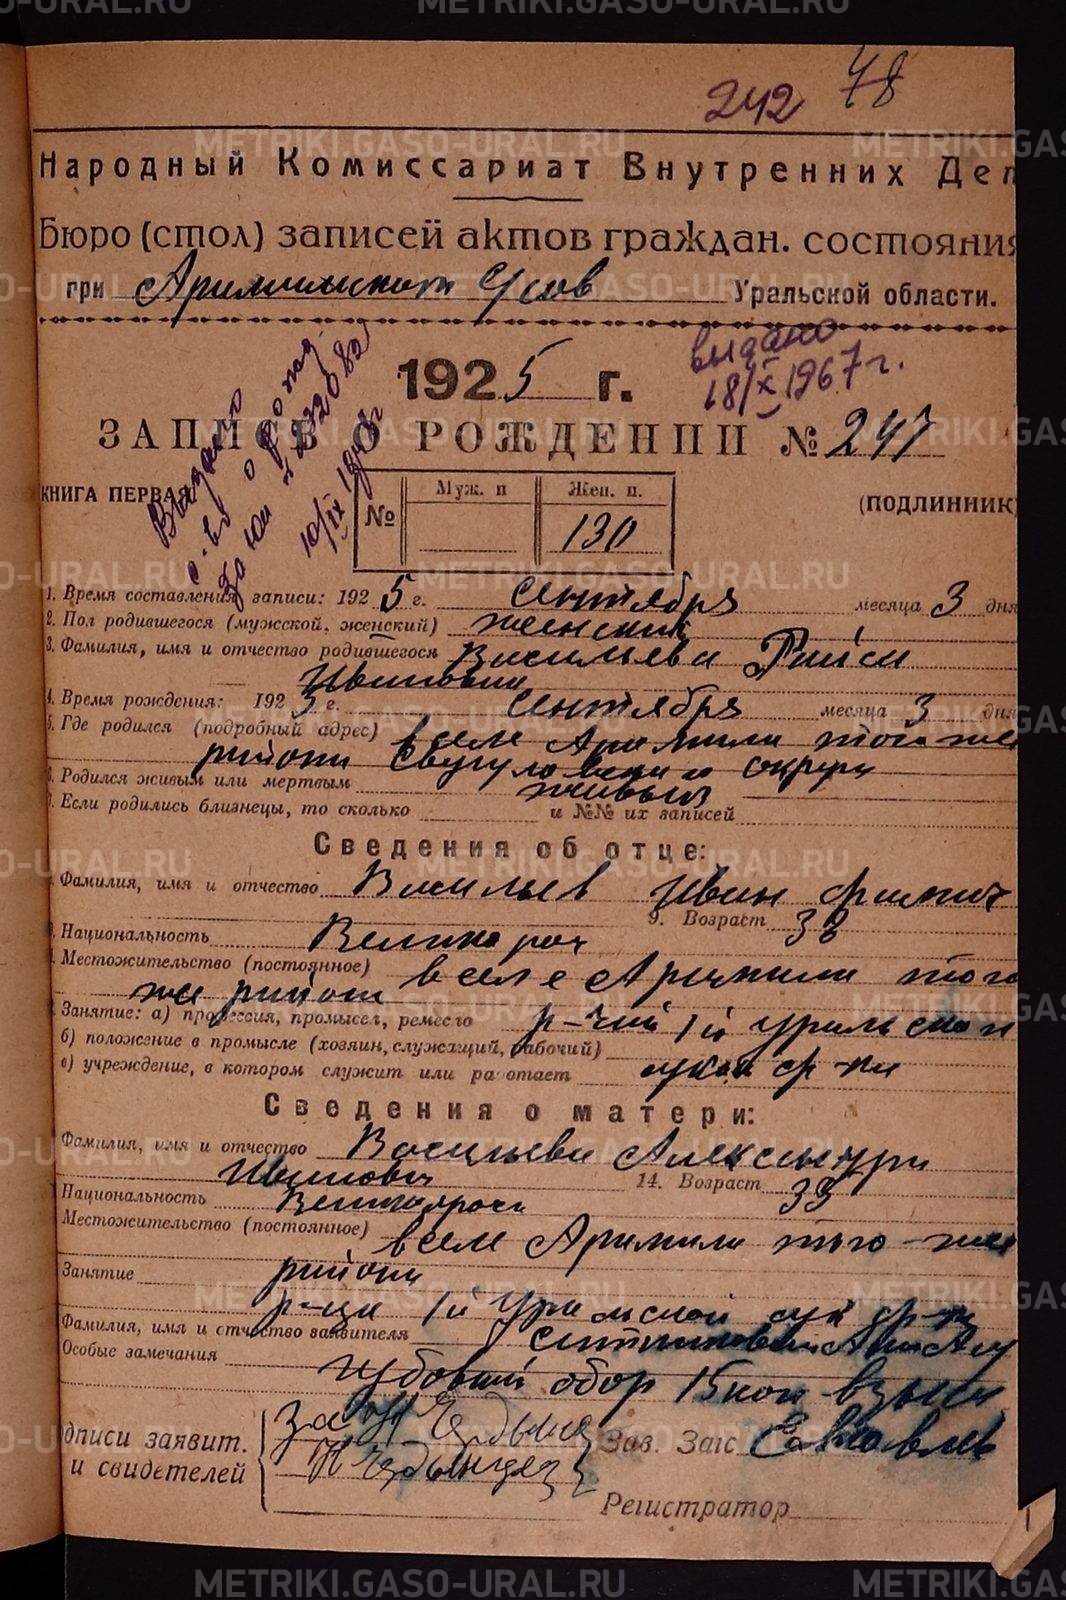 242 48
Народный Комиссариат Внутренних Дел
Бюро (стол) записей актов граждан. состояния
при Арамильском Уральской области.
выдано
18/X 1967 г.
1925 г.
ЗАПИСЬ О РОЖДЕНИИ № 241
Выдано
с-во о рожд
10/IX
КНИГА ПЕРВАЯ (ПОДЛИННИК)
№ Муж. п Жен. п.
130
1. Время составления записи: 1925 г. сентября месяца 3 дня
2. Пол родившегося (мужской, женский) женский
3. Фамилия, имя и отчество родившегося Васильева Раиса
Ивановна
4. Время рождения: 1925 г. сентября месяца 3 дня
5. Где родился (подробный адрес) в селе Арамили того же
района округа
6. Родился живым или мертвым живым
7. Если родились близнецы, то сколько и №№ их записей
Сведения об отце:
Фамилия, имя и отчество Васильев Иван
9. Возраст 38
Национальность Великорос
Местожительство (постоянное) в селе Арамили того
же района
Занятие: а) профессия, промысел, ремесло р-чий 1й уральской
б) положение в промысле (хозяин, служащий, рабочий)
в) учреждение, в котором служит или работает сукон ф-ки
Сведения о матери:
Фамилия, имя и отчество Васильева Александра
Ивановна 14. Возраст 33
Национальность Великоросс
Местожительство (постоянное) в селе Арамили того-же
района
Занятие
р-ца 1й Уральской сук ф-ки
Фамилия, имя и отчество заявителя
Особые замечания
сбор 15 коп взыск
дписи заявит.
и свидетелей
За
Зав. Загс
Регистратор
METRIKI.GASO-URAL.RU